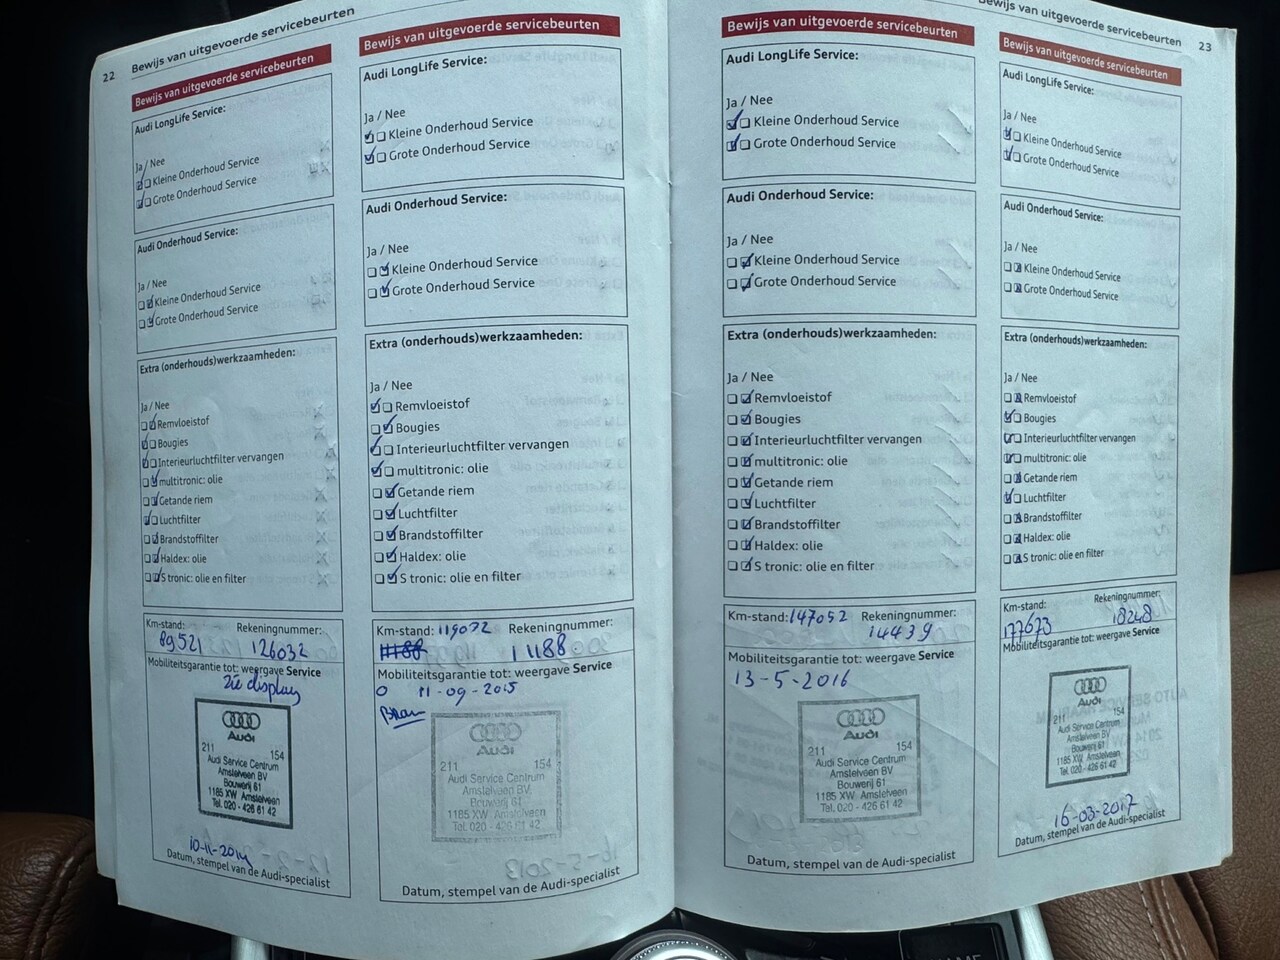 22 Bewijs van uitgevoerde servicebeurten
Bewijs van uitgevoerde servicebeurten
Audi LongLife Service:
Ja / Nee
Kleine Onderhoud Service
Grote Onderhoud Service
Audi Onderhoud Service:
Ja / Nee
Kleine Onderhoud Service
Grote Onderhoud Service
Extra (onderhouds)werkzaamheden:
Ja / Nee
Remvloeistof
Bougies
Interieurluchtfilter vervangen
multitronic: olie
Getande riem
Luchtfilter
Brandstoffilter
Haldex: olie
S tronic: olie en filter
Km-stand: Rekeningnummer:
89521 126032
Mobiliteitsgarantie tot: weergave Service
Zie display
Audi
211 154
Audi Service Centrum
Amstelveen BV
Bouwerij 61
1185 XW Amstelveen
Tel. 020 - 426 61 42
10-11-2014
Datum, stempel van de Audi-specialist
Bewijs van uitgevoerde servicebeurten
Audi LongLife Service:
Ja / Nee
Kleine Onderhoud Service
Grote Onderhoud Service
Audi Onderhoud Service:
Ja / Nee
Kleine Onderhoud Service
Grote Onderhoud Service
Extra (onderhouds)werkzaamheden:
Ja / Nee
Remvloeistof
Bougies
Interieurluchtfilter vervangen
multitronic: olie
Getande riem
Luchtfilter
Brandstoffilter
Haldex: olie
S tronic: olie en filter
Km-stand: 119072 Rekeningnummer:
11188
Mobiliteitsgarantie tot: weergave Service
11-09-2015
Audi
211 154
Audi Service Centrum
Amstelveen BV
Bouwerij 61
1185 XW Amstelveen
Tel. 020 - 426 61 42
Datum, stempel van de Audi-specialist
Bewijs van uitgevoerde servicebeurten
Audi LongLife Service:
Ja / Nee
Kleine Onderhoud Service
Grote Onderhoud Service
Audi Onderhoud Service:
Ja / Nee
Kleine Onderhoud Service
Grote Onderhoud Service
Extra (onderhouds)werkzaamheden:
Ja / Nee
Remvloeistof
Bougies
Interieurluchtfilter vervangen
multitronic: olie
Getande riem
Luchtfilter
Brandstoffilter
Haldex: olie
S tronic: olie en filter
Km-stand: 147052 Rekeningnummer:
14439
Mobiliteitsgarantie tot: weergave Service
13-5-2016
Audi
211 154
Audi Service Centrum
Amstelveen BV
Bouwerij 61
1185 XW Amstelveen
Tel. 020 - 426 61 42
Datum, stempel van de Audi-specialist
Bewijs van uitgevoerde servicebeurten 23
Bewijs van uitgevoerde servicebeurten
Audi LongLife Service:
Ja / Nee
Kleine Onderhoud Service
Grote Onderhoud Service
Audi Onderhoud Service:
Ja / Nee
Kleine Onderhoud Service
Grote Onderhoud Service
Extra (onderhouds)werkzaamheden:
Ja / Nee
Remvloeistof
Bougies
Interieurluchtfilter vervangen
multitronic: olie
Getande riem
Luchtfilter
Brandstoffilter
Haldex: olie
S tronic: olie en filter
Km-stand: Rekeningnummer:
177673 18248
Mobiliteitsgarantie tot: weergave Service
Audi
211 154
Audi Service Centrum
Amstelveen BV
Bouwerij 61
1185 XW Amstelveen
Tel. 020 - 426 61 42
16-03-2017
Datum, stempel van de Audi-specialist